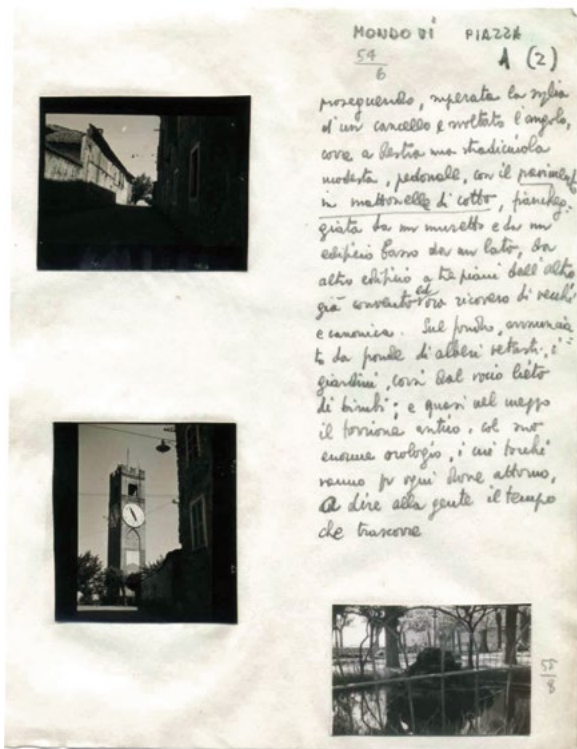 MONDOVÌ PIAZZA
54
6
A (2)
proseguendo, superata la soglia
d'un cancello e svoltato l'angolo,
corre a destra una stradicciola
modesta, pedonale, con il paviment
in mattonelle di cotto, fiancheg-
giata da un muretto e da un
edificio basso da un lato, da
altro edificio a tre piani dall'altro
già convento ed ora ricovero di vecchi
e canonica. Sul fondo, annuncia
to da fronde di alberi vetusti, i
giardini, corsi dal vocio lieto
di bimbi; e quasi nel mezzo
il torrione antico, col suo
enorme orologio, i cui tocchi
vanno per ogni dove attorno,
a dire alla gente il tempo
che trascorre
55
8